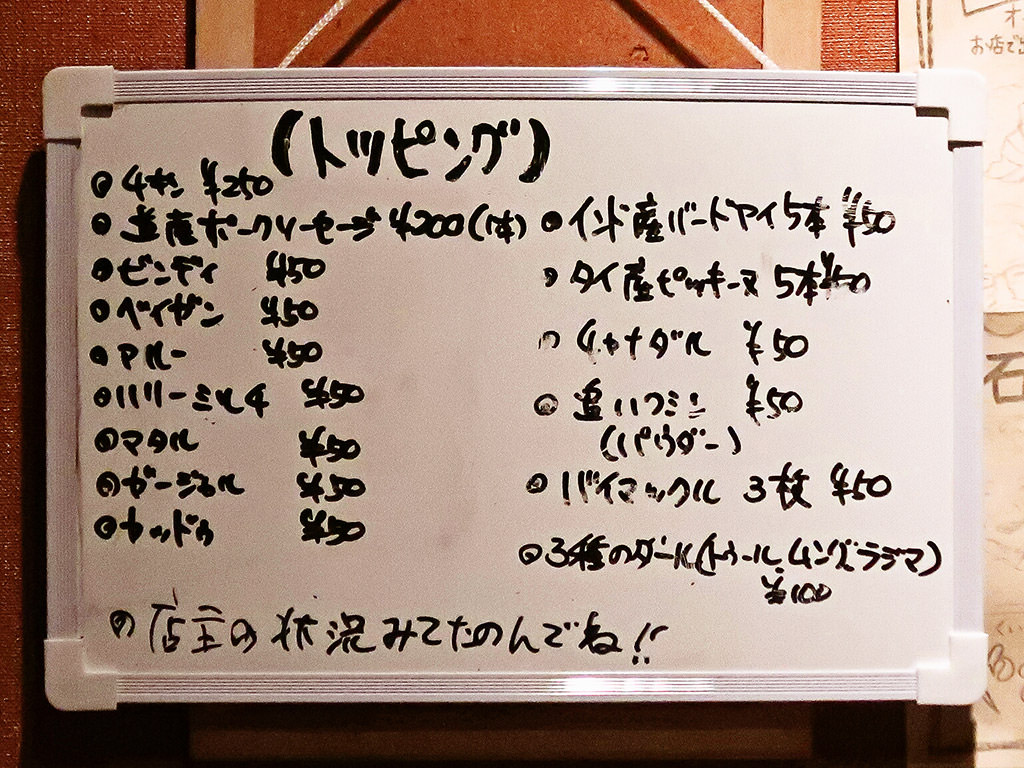 (トッピング)
チキン ¥250
道産ポークソーセージ ¥200(1本)
ビンディ ¥50
ベイガン ¥50
アルー ¥50
ハリーミルチ ¥50
マタル ¥50
ガージャル ¥50
カッドゥ ¥50
インド産バードアイ5本 ¥50
タイ産ピッキーヌ 5本¥50
チャナダル ¥50
追いクミン ¥50
(パウダー)
バイマックル 3枚 ¥50
3種のダール(トゥール、ムング、ラジマ)
¥100
店主の状況みてたのんでね!!
お店で
石